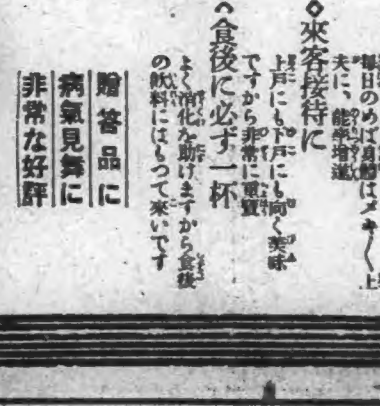 毎日のめば身體はメキ〱上
夫に、能率増進
◇來客接待に
上戸にも下戸にも向く美味
ですから非常に重寶
食後に必ず一杯
よく消化を助けますから食後
の飲料にはもつて來いです
贈答品に
病氣見舞に
非常な好評